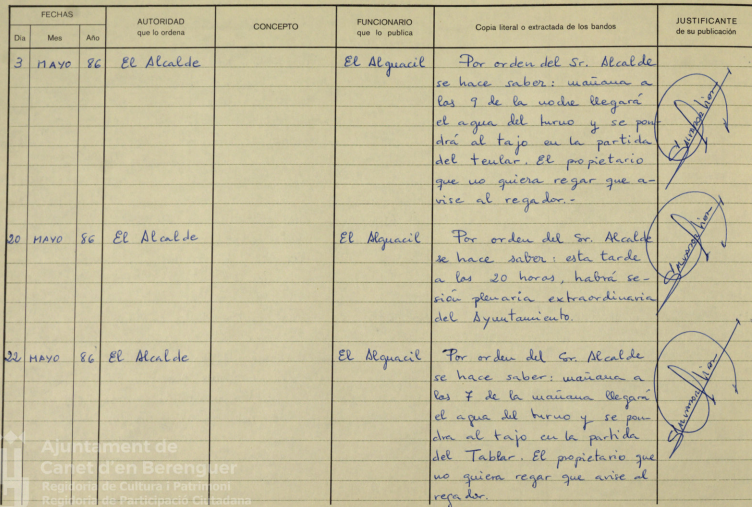 FECHAS
Dia Mes Año
AUTORIDAD
que lo ordena
CONCEPTO
FUNCIONARIO
que lo publica
Copia literal o extractada de los bandos
JUSTIFICANTE
de su publicación
3 MAYO 86 El Alcalde El Alguacil Por orden del Sr. Alcalde
se hace saber: mañana a
las 9 de la noche llegará
el agua del turno y se pon-
drá al tajo en la partida
del teular. El propietario
que no quiera regar que a-
vise al regador.-
20 MAYO 86 El Alcalde El Alguacil Por orden del Sr. Alcalde
se hace saber: esta tarde
a las 20 horas, habrá se-
sión plenaria extraordinaria
del Ayuntamiento.
22 MAYO 86 El Alcalde El Alguacil Por orden del Sr. Alcalde
se hace saber: mañana a
las 7 de la mañana llegará
el agua del turno y se pon
dra al tajo en la partida
del Tablar. El propietario que
no quiera regar que avise al
regador.
Ajuntament de
Canet d'en Berenguer
Regidoria de Cultura i Patrimoni
Regidoria de Participació Ciutadana